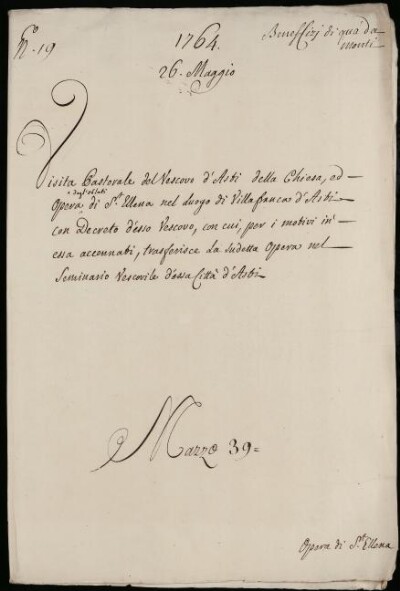 N.o 19
1764.
Beneffizj di quà da
monti
26. Maggio
Visita Pastorale del Vescovo d'Asti della Chiesa, ed
degl'oblati
Opera di S.ta Ellena nel Luogo di Villafranca d'Asti
con Decreto d'esso Vescovo, con cui, per i motivi in
essa accennati, trasferisce la sudetta Opera nel
Seminario Vescovile d'essa Città d'Asti
Mazzo 39=
Opera di S.ta Ellena